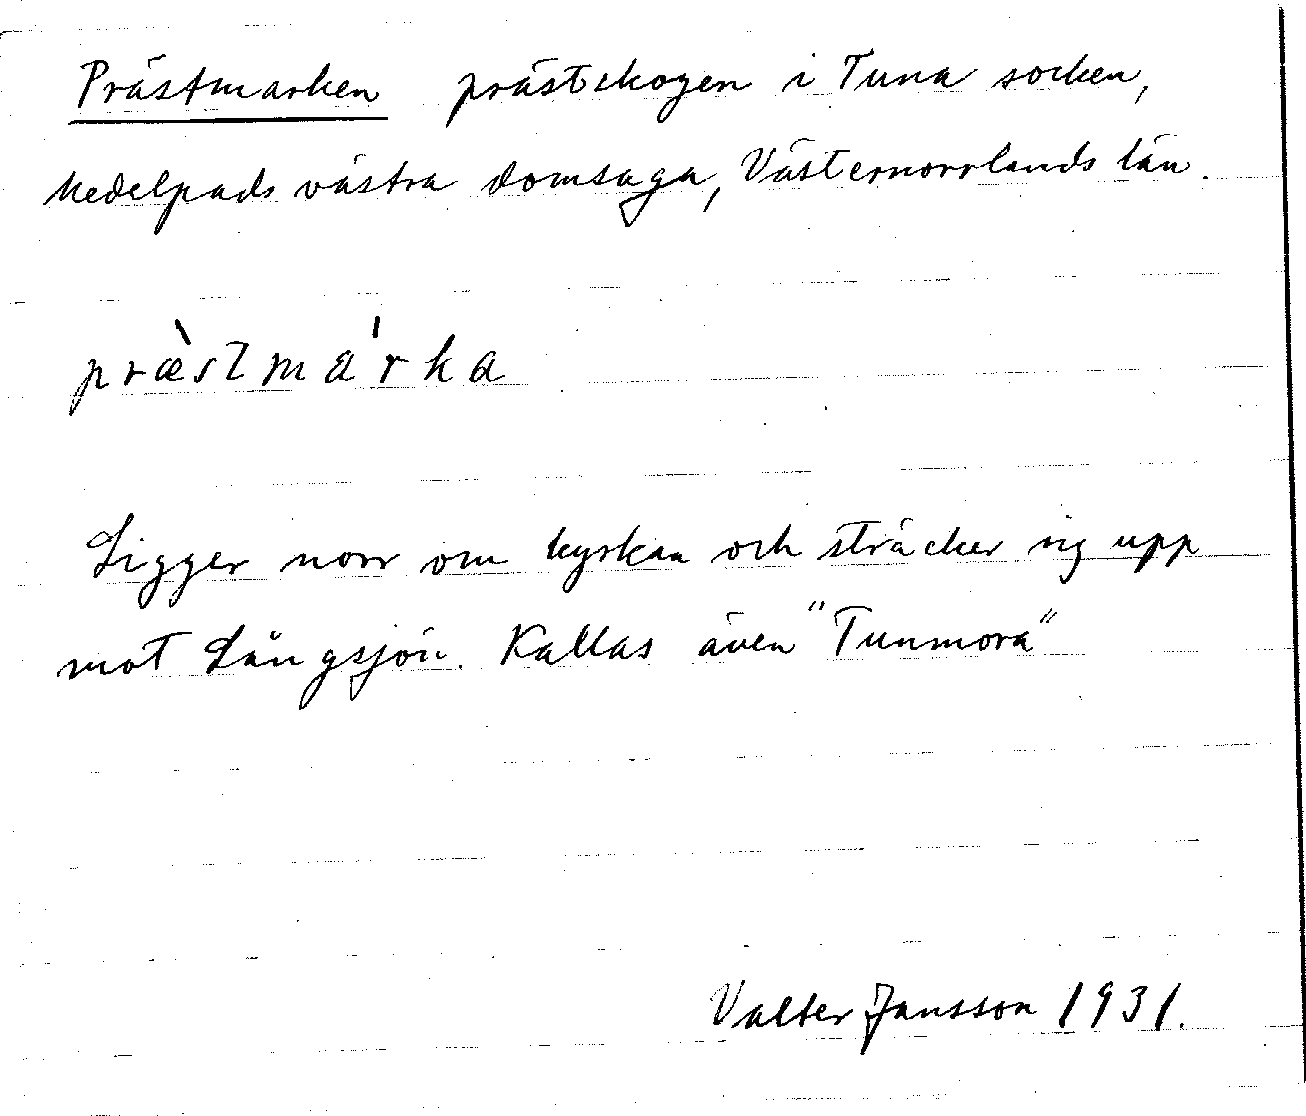 Prästmarken prästskogen i Tuna socken,
Medelpads västra domsaga, Västernorrlands län.
præ̀stmárka
Ligger norr om kyrkan och sträcker sig upp
mot Långsjön. Kallas även "Tunmora"
Valter Jansson 1931.